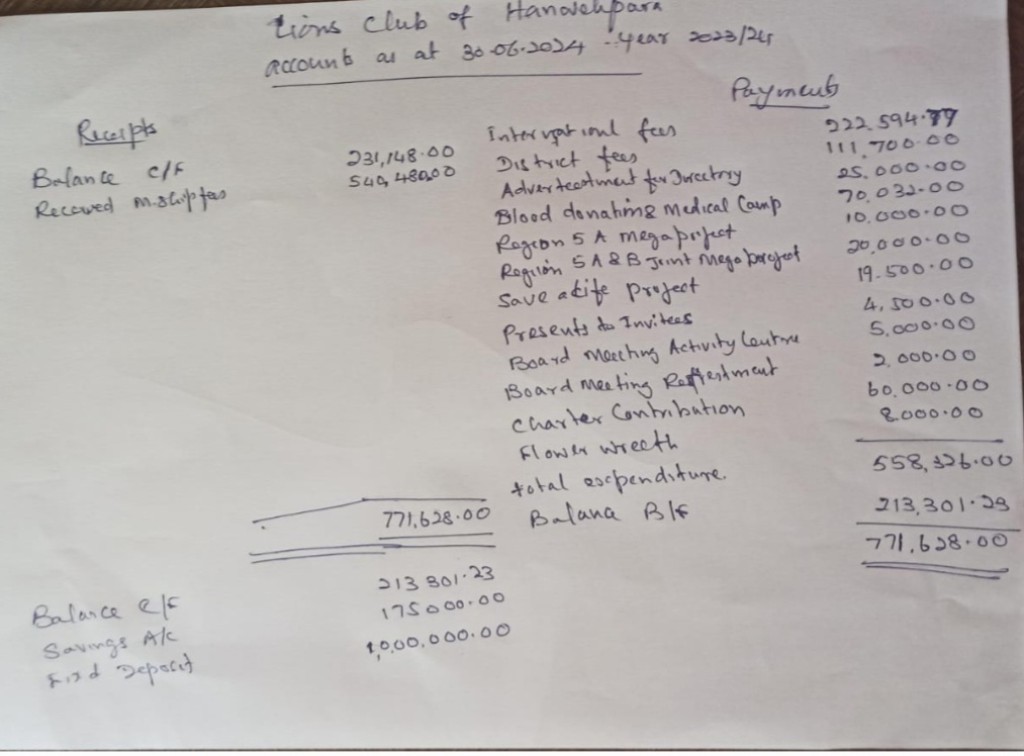 Lions Club of Hanwellpara
accounts as at 30-06-2024 - Year 2023/24
Receipts
Payments
Balance c/f 231,148.00
Received M.ship fees 540,480.00
International fees 222,594.77
District fees 111,700.00
Advertestment for Directory 25,000.00
Blood donating & Medical Camp 70,032.00
Region 5 A mega project 10,000.00
Region 5 A & B Joint Mega project 20,000.00
Save a life project 19,500.00
Presents to Invitees 4,500.00
Board Meeting Activity Centre 5,000.00
Board Meeting 2,000.00
Charter Contribution 60,000.00
Flower wreeth 8,000.00
total expenditure. 558,326.00
771,628.00 Balance B/f 213,301.23
771,628.00
Balance c/f 213 301.23
Savings A/c 175000.00
Fixd Deposit 1,000,000.00